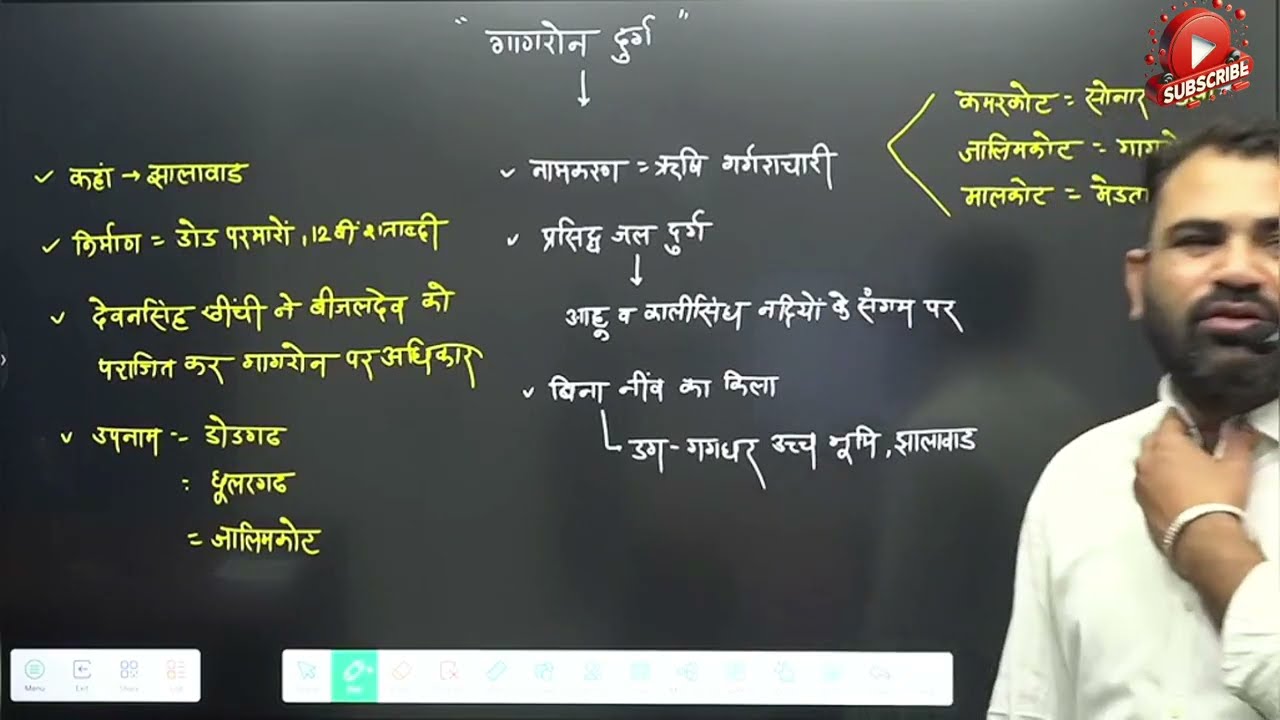 " गागरोन दुर्ग "
✓ कहां → झालावाड
✓ निर्माण = डोड परमारों, 12वीं शताब्दी
✓ देवनसिंह खींची ने बीजलदेव को
पराजित कर गागरोन पर अधिकार
✓ उपनाम :- डोडगढ
: धूलरगढ
= जालिमकोट
✓ नामकरण = ऋषि गर्गराचारी
✓ प्रसिद्ध जल दुर्ग
आहू व कालीसिंध नदियों के संगम पर
✓ बिना नींव का किला
डग - गगधार उच्च भूमि, झालावाड
कमरकोट = सोनार
जालिमकोट = गागरो
मालकोट = मेडता
SUBSCRIBE
Menu
Exit